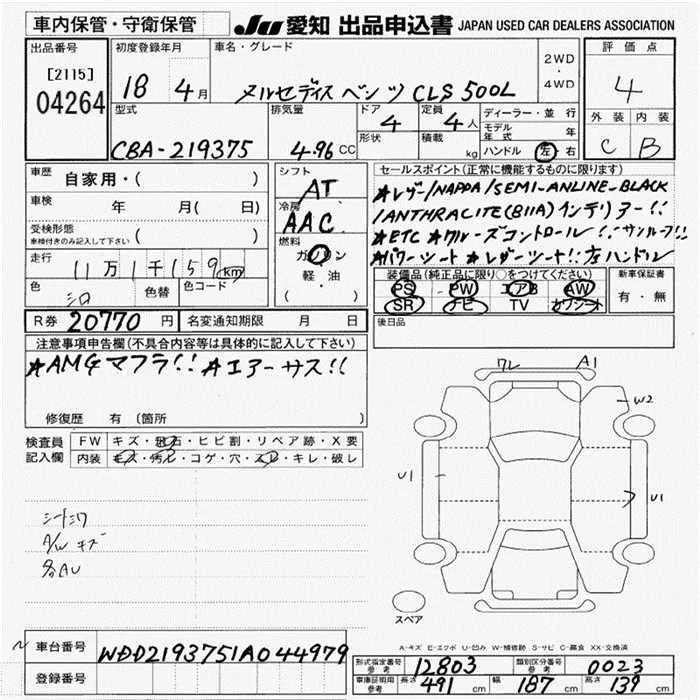 車内保管・守衛保管 JU 愛知 出品申込書 JAPAN USED CAR DEALERS ASSOCIATION
出品番号 初度登録年月 車名・グレード 評価点
[2115]
04264
18 4月 メルセディス ベンツ CLS 500L 2WD・4WD 4
型式 排気量 ドア 定員 ディーラー・並行 外装 内装
CBA-219375 4.96 CC 4 4人 モデル年式 年 C B
形状 積載 kg ハンドル 左 右
車歴 自家用・( ) シフト AT
車検 年 月( 日) 冷房 AAC
受検形態 ( )
車検付きのみ記入して下さい
燃料 ガソリン
軽・油
( )
走行 11万1千159km
色 シロ 色替 色コード
R券 20770円 名変通知期限 月 日
セールスポイント(正常に機能するものに限ります)
★レザー/NAPPA/SEMI-ANLINE-BLACK
/ANTHRACITE(811A)インテリアー!!
★ETC ★クルーズコントロール!! サンルーフ!!
★パワーシート★レザーシート!! 左ハンドル
装備品(純正品に限り○をつけてください) 新車保証書
PS PW エアB AW 有・無
SR ナビ TV カワシート
後日品
注意事項申告欄(不具合内容等は具体的に記入して下さい)
★AMGマフラ!! ★エアーサス!!
修復歴 有 (箇所 )
検査員記入欄 FW キズ・飛石・ヒビ割・リペア跡・X要
内装 キズ・汚レ・コゲ・穴・スレ・キレ・破レ
ワレ A1
W2
U1 U1
シートシワ
A/W キズ
各AU
スペア
A-キズ E-エクボ U-凹み W-補修跡 S-サビ C-腐食 XX-交換済
車台番号 WDD2193751A044979
登録番号
形式指定番号 参考 12803 類別区分番号 参考 0023
車庫証明用 参考 長さ 491 cm 幅 187 cm 高さ 139 cm